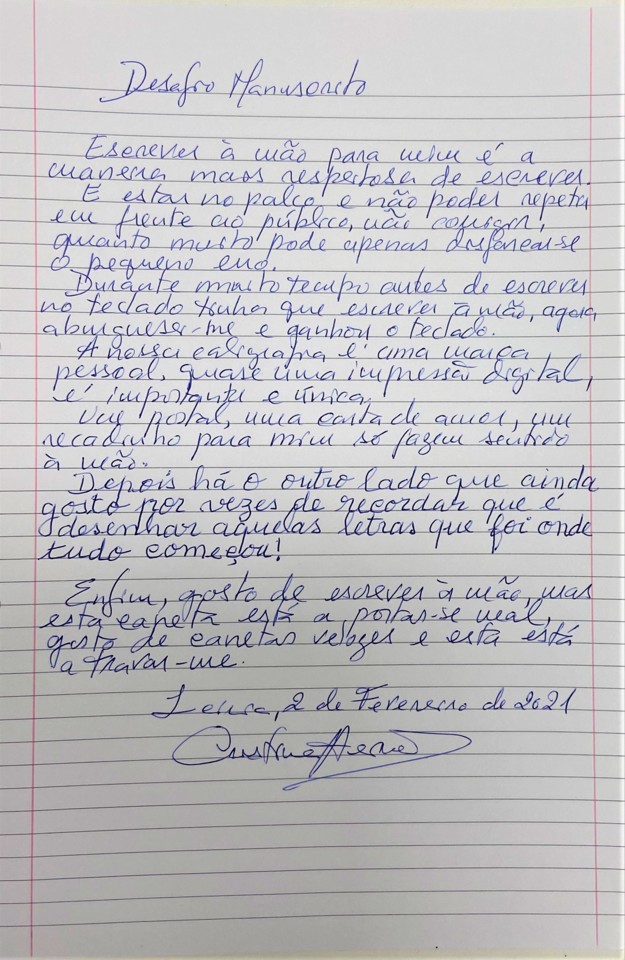 Desafio Manuscrito
Escrever à mão para mim é a
maneira mais respeitosa de escrever.
É estar no palco e não poder repetir
em frente ao público, não corrigir,
quanto muito pode apenas disfarçar-se
o pequeno erro.
Durante muito tempo antes de escrever
no teclado tinha que escrever à mão, agora
aburguesei-me e ganhou o teclado.
A nossa caligrafia é uma marca
pessoal, quase uma impressão digital,
é importante e única.
Um postal, uma carta de amor, um
recadinho para mim só fazem sentido
à mão.
Depois há o outro lado que ainda
gosto por vezes de recordar que é
desenhar aquelas letras que foi onde
tudo começou!
Enfim, gosto de escrever à mão, mas
esta caneta está a portar-se mal,
gosto de canetas velozes e esta está
a travar-me.
2 de Fevereiro de 2021